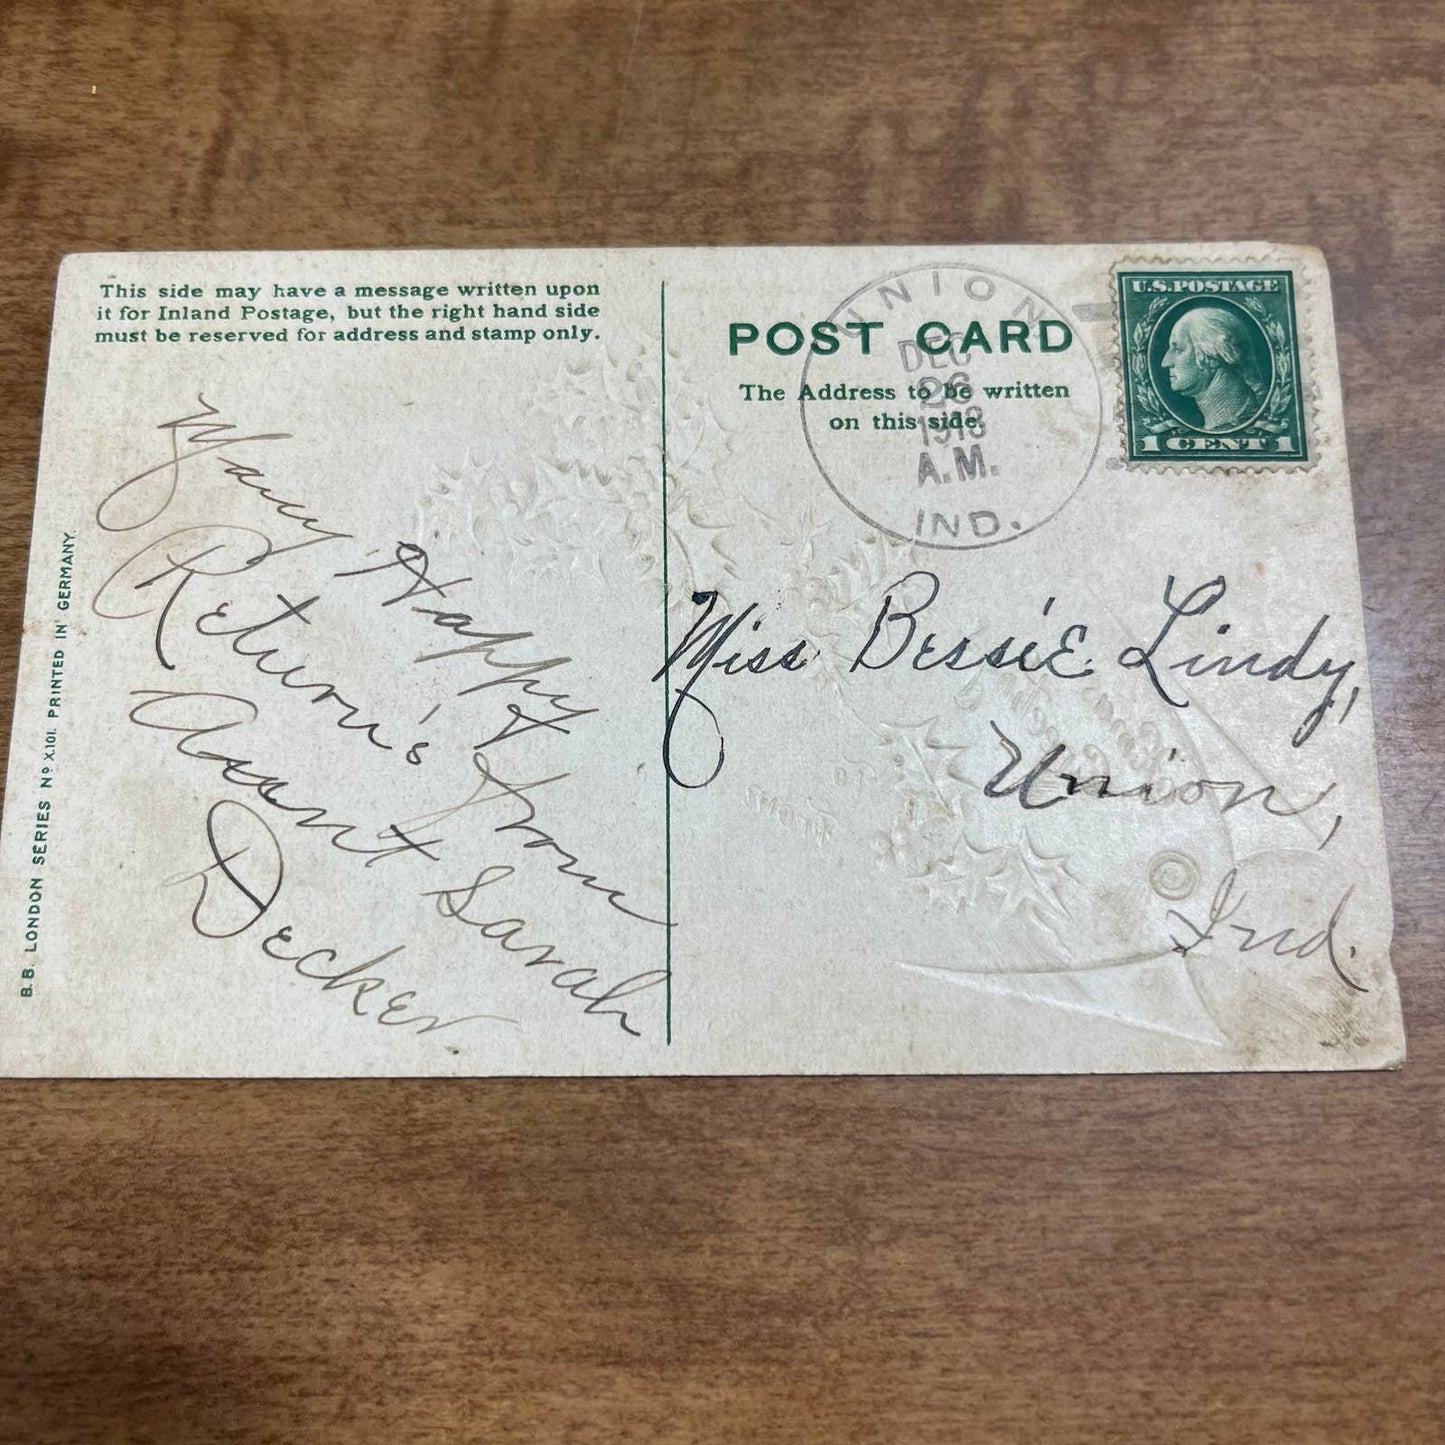 This side may have a message written upon
it for Inland Postage, but the right hand side
must be reserved for address and stamp only.
Many Happy
Return's from
Aunt Sarah
Decker.
B.B. LONDON SERIES Nº X.101. PRINTED IN GERMANY.
POST CARD
The Address to be written
on this side.
UNION
DEC
26
1913
A.M.
IND.
U.S. POSTAGE
1 CENT 1
Miss Bessie Lindy,
Union,
Ind.